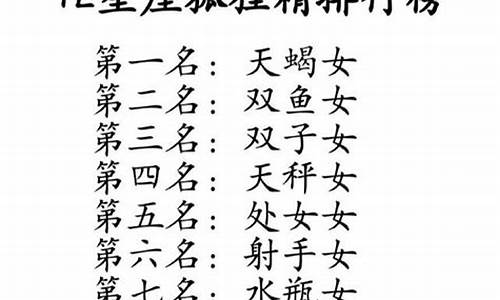 12星座狐狸精排行榜
第一名：天蝎女
第二名：双鱼女
第三名：双子女
第四名：天秤女
第五名：处女女
第六名：射手女
第七名：水瓶女